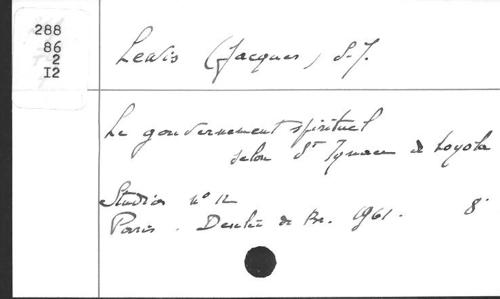 288
86
2
I2
Lewis (Jacques) S.J.
Le gouvernement spirituel
selon St Ignace de Loyola
Studia n° 12
Paris. Desclée de Br. 1961. 8°